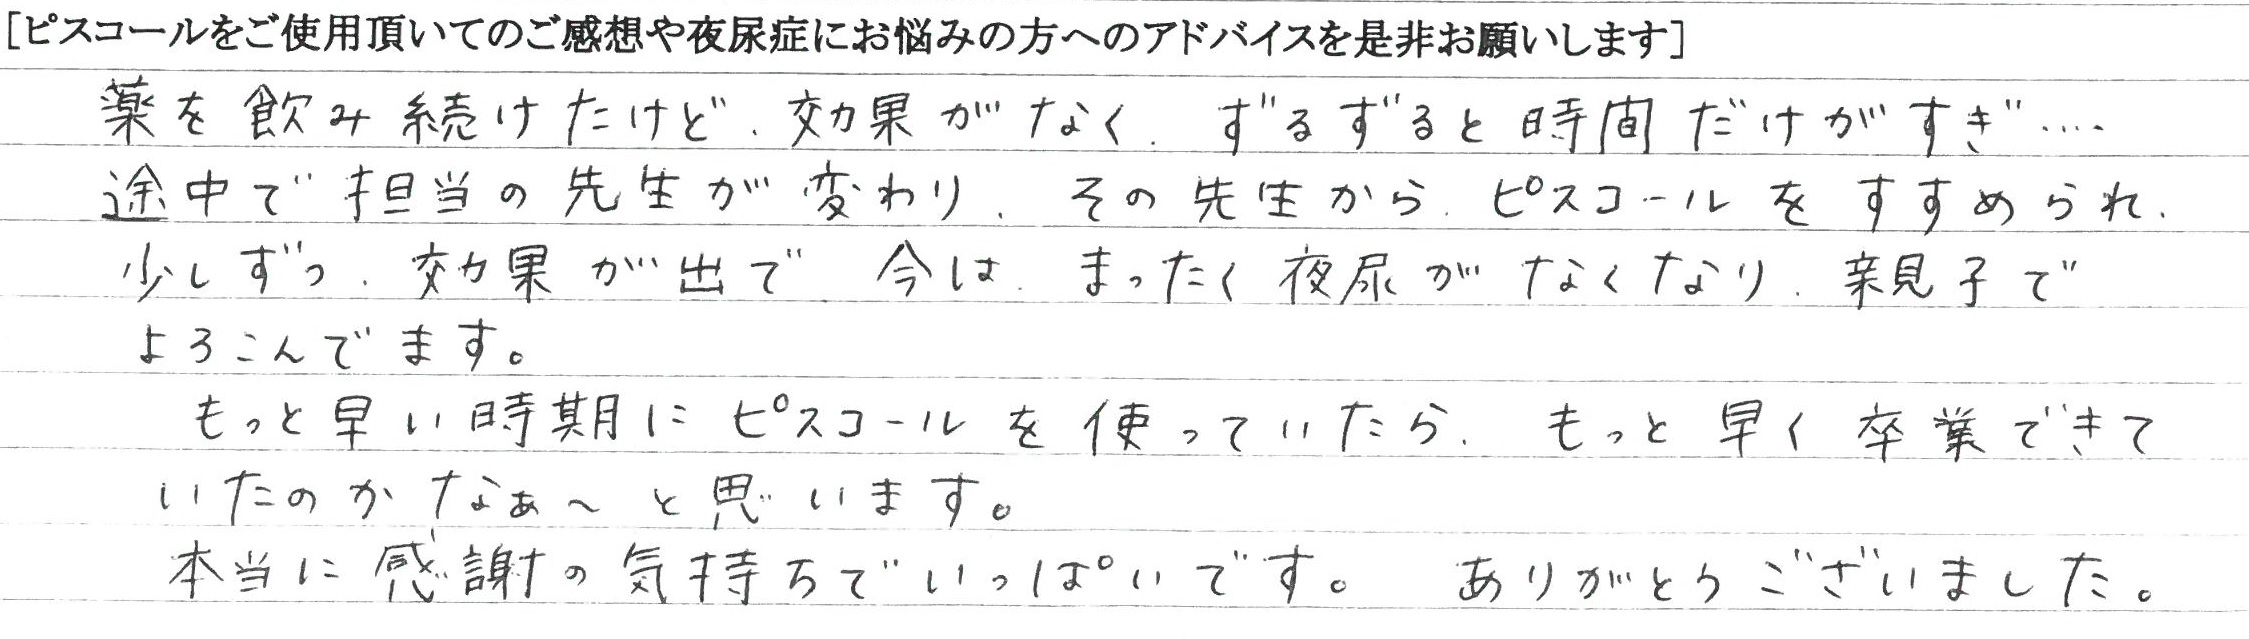 [ピスコールをご使用頂いてのご感想や夜尿症にお悩みの方へのアドバイスを是非お願いします]
薬を飲み続けたけど、効果がなく、ずるずると時間だけがすぎ‥‥
途中で担当の先生が変わり、その先生から、ピスコールをすすめられ、
少しずつ、効果が出で 今は、まったく夜尿がなくなり、親子で
よろこんでます。
もっと早い時期にピスコールを使っていたら、もっと早く卒業できて
いたのかなぁ〜と思います。
本当に感謝の気持ちでいっぱいです。 ありがとうございました。